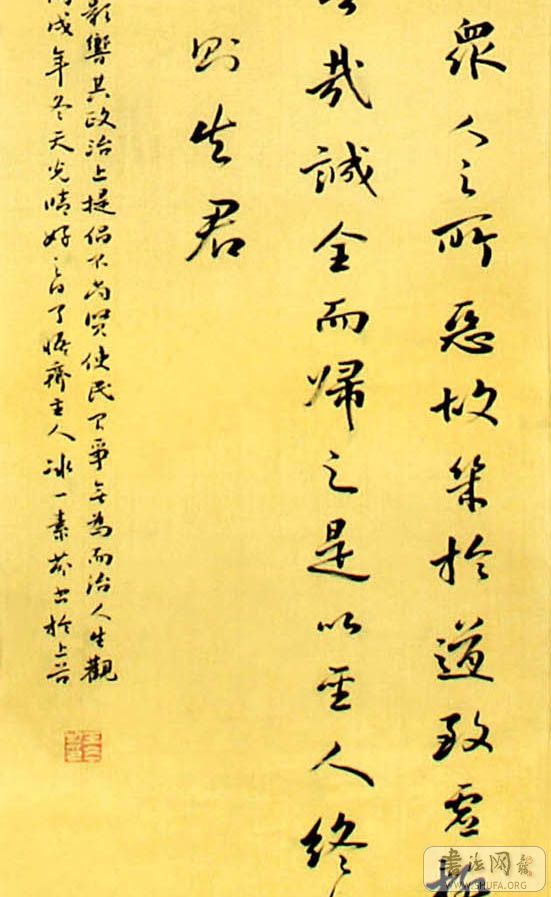 眾人之所惡故幾於道致虛
哉誠全而歸之是以聖人終
則失君
影響其政治上提倡不尚賢使民不爭無為而治人生觀
戌年冬天光晴好之日了悟齋主人冰一素芬書於上谷
書法网
WWW.SHUFA.ORG